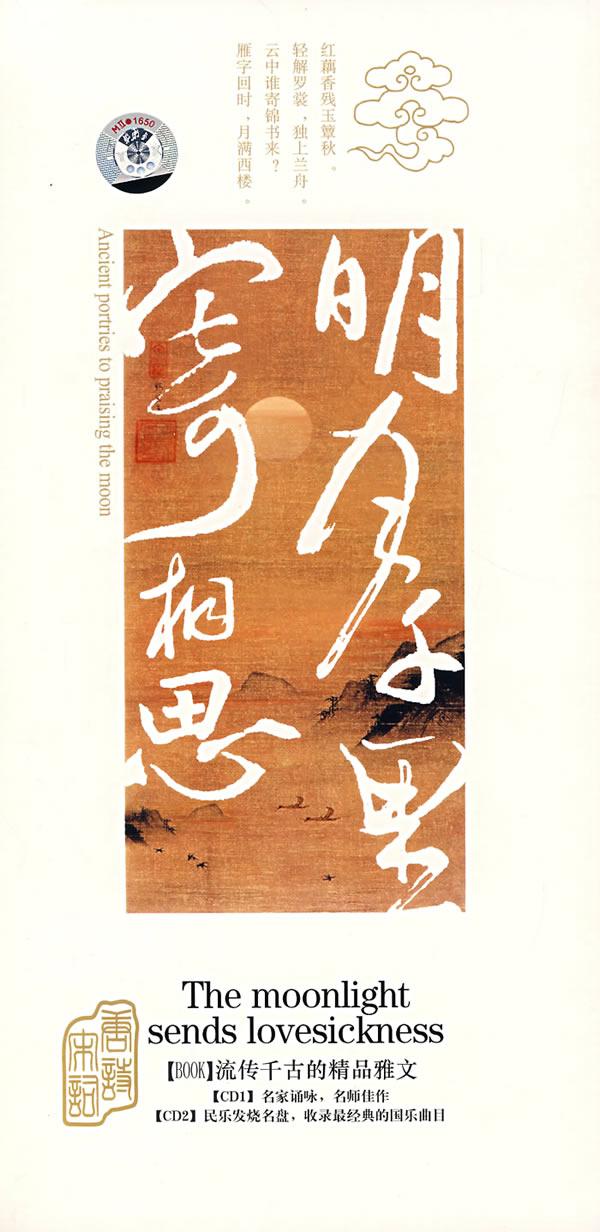 红藕香残玉簟秋。
轻解罗裳,独上兰舟。
云中谁寄锦书来?
雁字回时,月满西楼。
MⅡ●1650
明月千里
寄相思
Ancient portries to praising the moon
The moonlight
sends lovesickness
唐詩
宋詞
【BOOK】流传千古的精品雅文
【CD1】名家诵咏,名师佳作
【CD2】民乐发烧名盘,收录最经典的国乐曲目